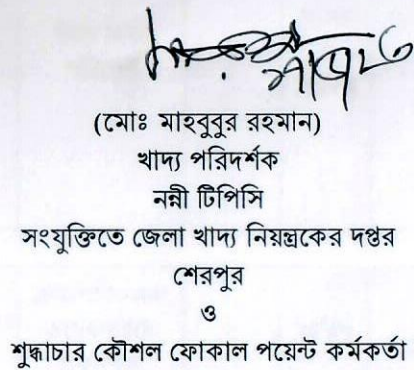 (মোঃ মাহবুবুর রহমান)
খাদ্য পরিদর্শক
নন্নী টিপিসি
সংযুক্তিতে জেলা খাদ্য নিয়ন্ত্রকের দপ্তর
শেরপুর
ও
শুদ্ধাচার কৌশল ফোকাল পয়েন্ট কর্মকর্তা